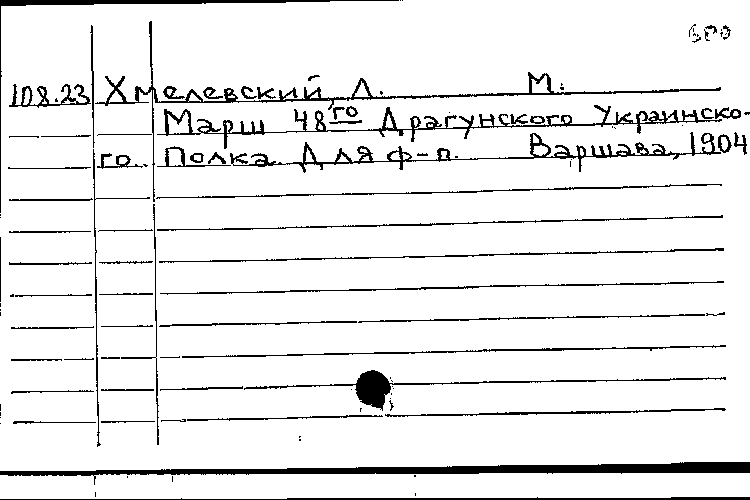 108.23 Хмелевский, Л. М.
Марш 48го Драгунского Украинско-
го Полка. Для ф-п. Варшава, 1904